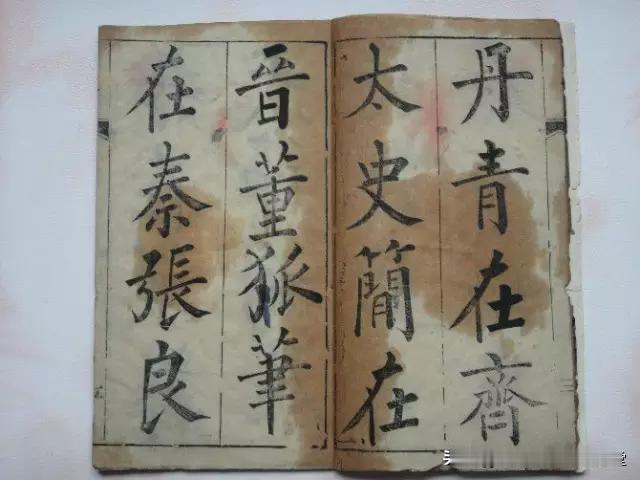 丹青在齊
太史簡在
晉董狐筆
在秦張良